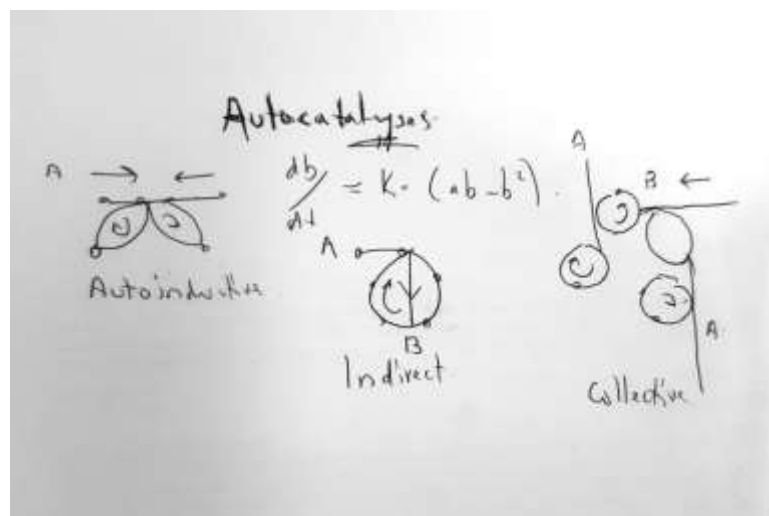 Autocatalyses
A
db/dt = K. (ab-b²).
A
B
A
Autoinductive
B
Indirect
A.
Collective